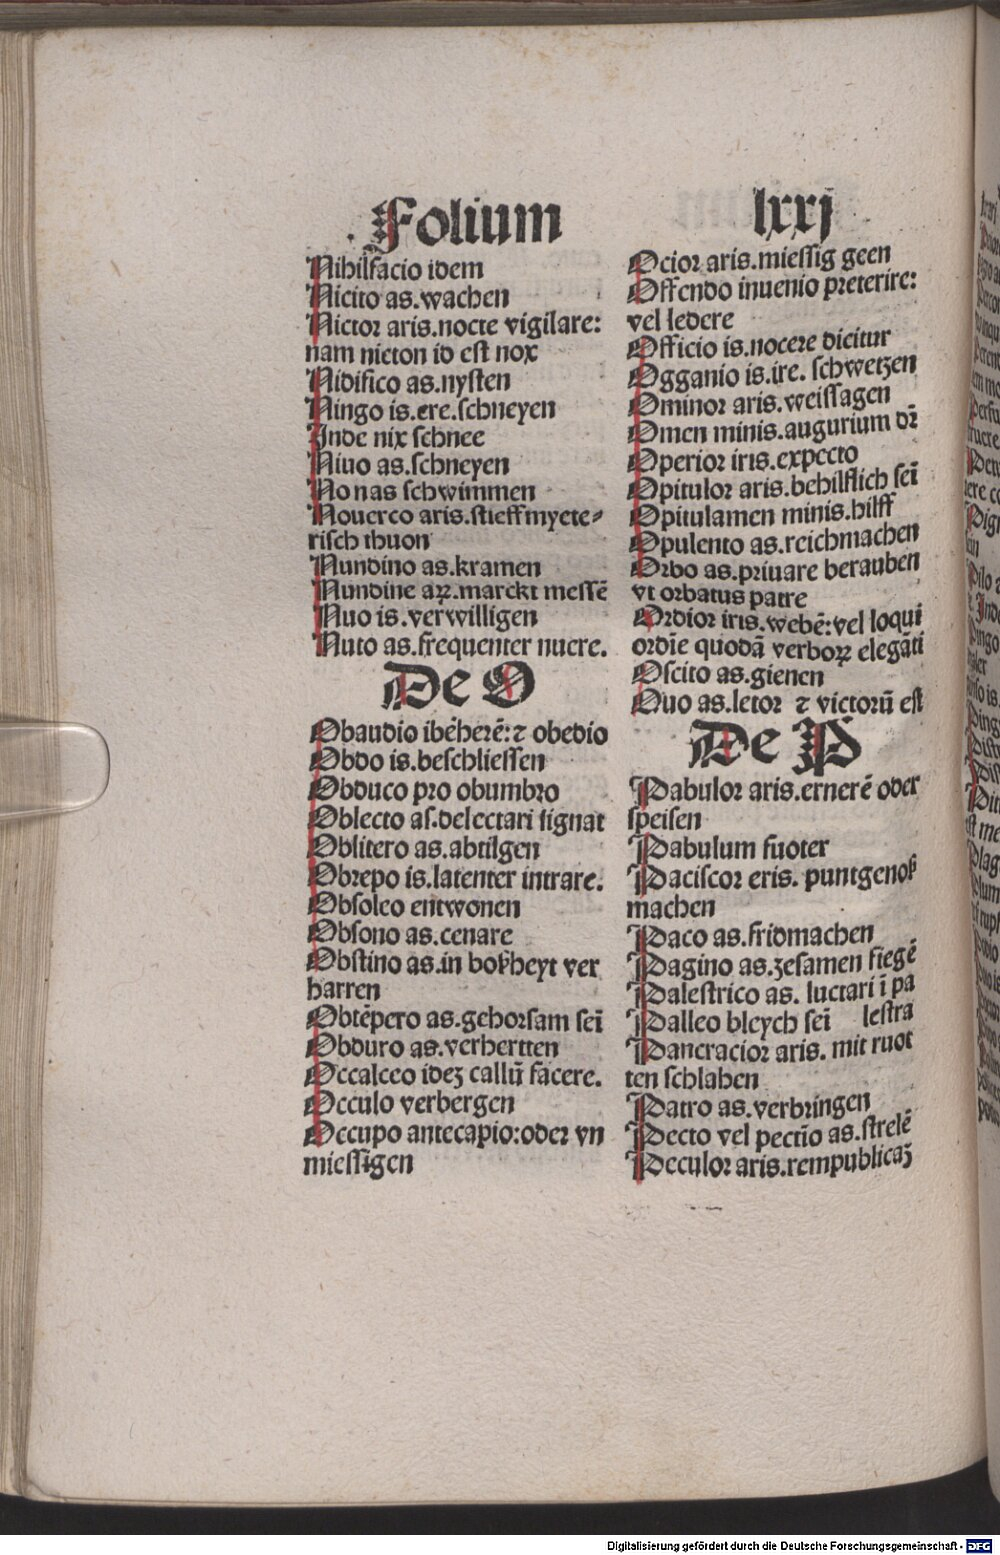 Folium lxxj
Nihilfacio idem
Nicito as.wachen
Nictor aris.nocte vigilare:
nam nicton id est nox
Nidifico as.nysten
Ningo is.ere.schneyen
Inde nix schnee
Niuo as.schneyen
No nas schwimmen
Nouerco aris.stieffmyete⸗
risch thuon
Nundino as.kramen
Nundine aꝝ.marckt messē
Nuo is.verwilligen
Nuto as.frequenter nuere.
De O
Obaudio ibēherē:⁊ obedio
Obdo is.beschliessen
Obduco pro obumbro
Oblecto as.delectari signat
Oblitero as.abtilgen
Obrepo is.latenter intrare.
Obsoleo entwonen
Obsono as.cenare
Obstino as.in boßheyt ver
harren
Obtēpero as.gehorsam sei̅
Obduro as.verhertten
Occalceo ideʒ callū facere.
Occulo verbergen
Occupo antecapio:oder vn
miessigen
Ocior aris.miessig geen
Offendo inuenio preterire:
vel ledere
Officio is.nocere dicitur
Ogganio is.ire. schwetzen
Ominor aris.weissagen
Omen minis.augurium dr̄
Operior iris.expecto
Opitulor aris.behilflich sei̅
Opitulamen minis.hilff
Opulento as.reichmachen
Orbo as.priuare berauben
vt orbatus patre
Ordior iris.webē:vel loqui
ordi̅e quodā verboꝝ elegāti
Oscito as.gienen
Ouo as.letor ⁊ victorū est
De P
Pabulor aris.ernerē oder
speisen
Pabulum fuoter
Paciscor eris. puntgenoß
machen
Paco as.fridmachen
Pagino as.zesamen fiegē
Palestrico as. luctari i̅ pa
Palleo bleych sei̅ lestra
Pancracior aris. mit ruot
ten schlahen
Patro as.verbringen
Pecto vel pecti̅o as.strelē
Peculor aris.rempublicaʒ
Digitalisierung gefördert durch die Deutsche Forschungsgemeinschaft - DFG